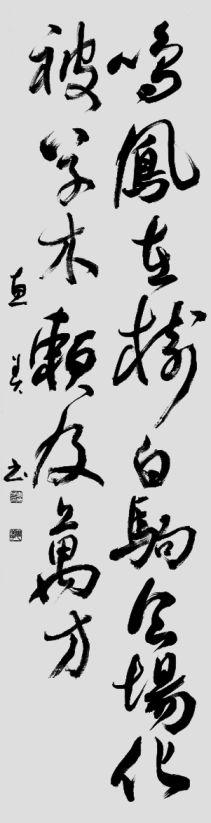 鳴鳳在樹白駒食場化
被草木賴及萬方
直美書